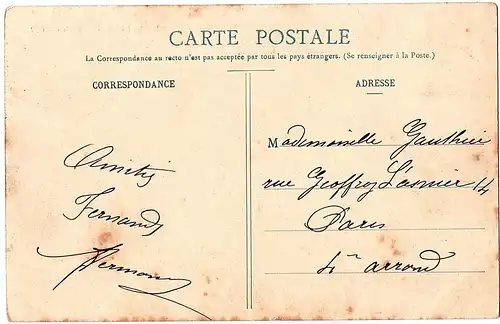 CARTE POSTALE
La Correspondance au recto n'est pas acceptée par tous les pays étrangers. (Se renseigner à la Poste.)
CORRESPONDANCE
Amitiés
Fernand
ADRESSE
Mademoiselle Gauthier
rue Geoffroy L'asnier 14
Paris
4e arrond